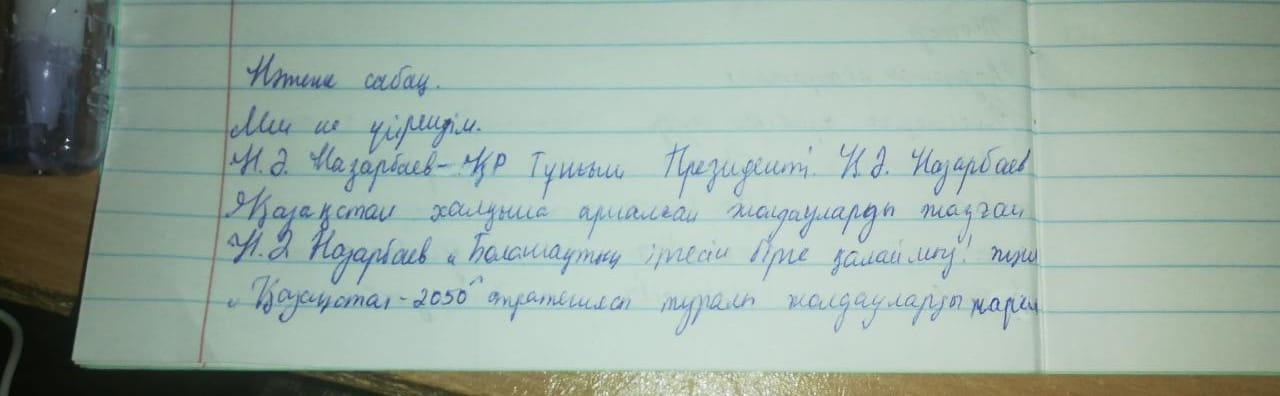 Нәтиже сабақ.
Мен не үйрендім.
Н.Ә. Назарбаев - ҚР Тұңғыш Президенті. Н.Ә. Назарбаев
Қазақстан халқына арналған жолдауларды жазған
Н.Ә Назарбаев "Болашақтың іргесін бірге қалаймыз! және
"Қазақстан - 2050" стратегиясы туралы жолдауларды